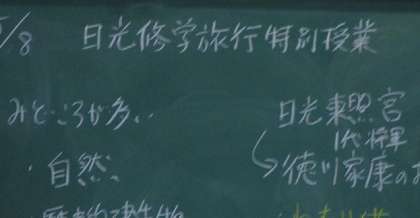 /8 日光修学旅行特別授業
みどころが多い
日光東照宮
1代将軍
・自然
徳川家康の